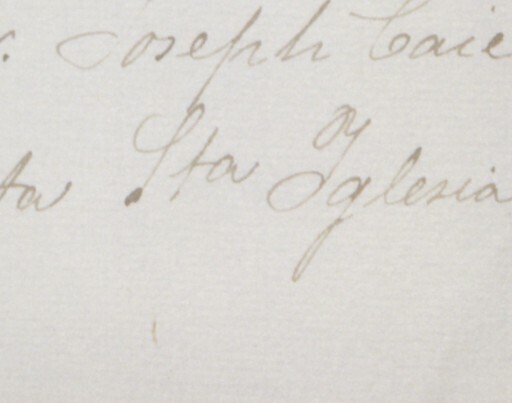 Joseph Caie
ta Sta Yglesia